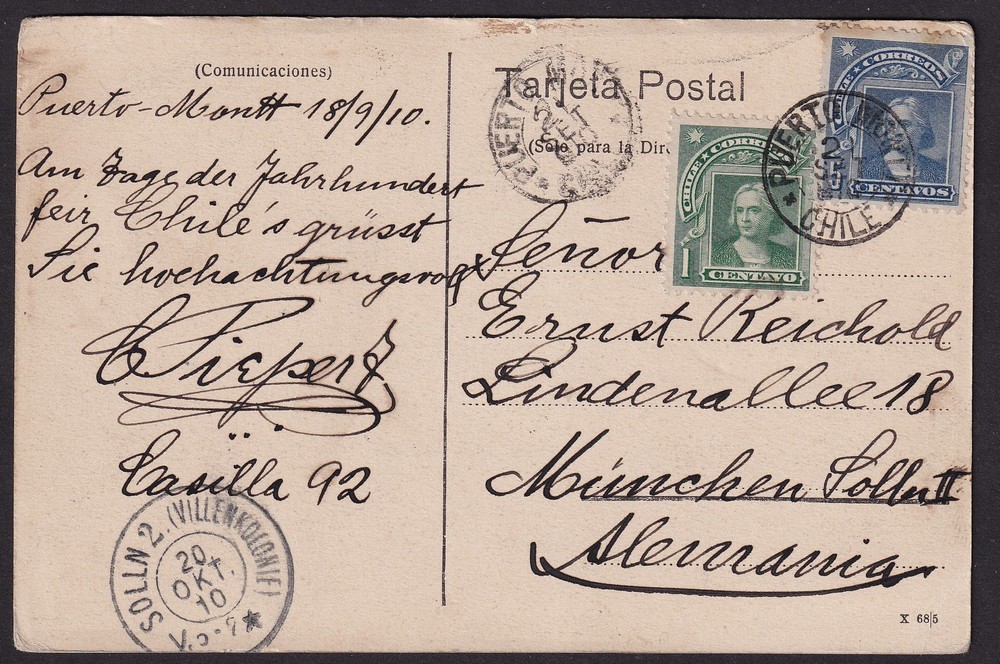 (Comunicaciones)
Puerto-Montt 18/9/10.
Am Tage der Jahrhundert
feir Chile's grüsst
Sie hochachtungsvoll
Casilla 92
SOLLN 2. (VILLENKOLONIE)
20
OKT.
10
V.8-9
Tarjeta Postal
(Sólo para la Dire
PUERTO MONTT
CHILE CORREOS
1 CENTAVO
CORREOS
CENTAVOS
PUERTO MONTT
2
SET
CHILE
Señor
Ernst Reichold
Lindenallee 18
München Solln II
Alemania
X 68|5